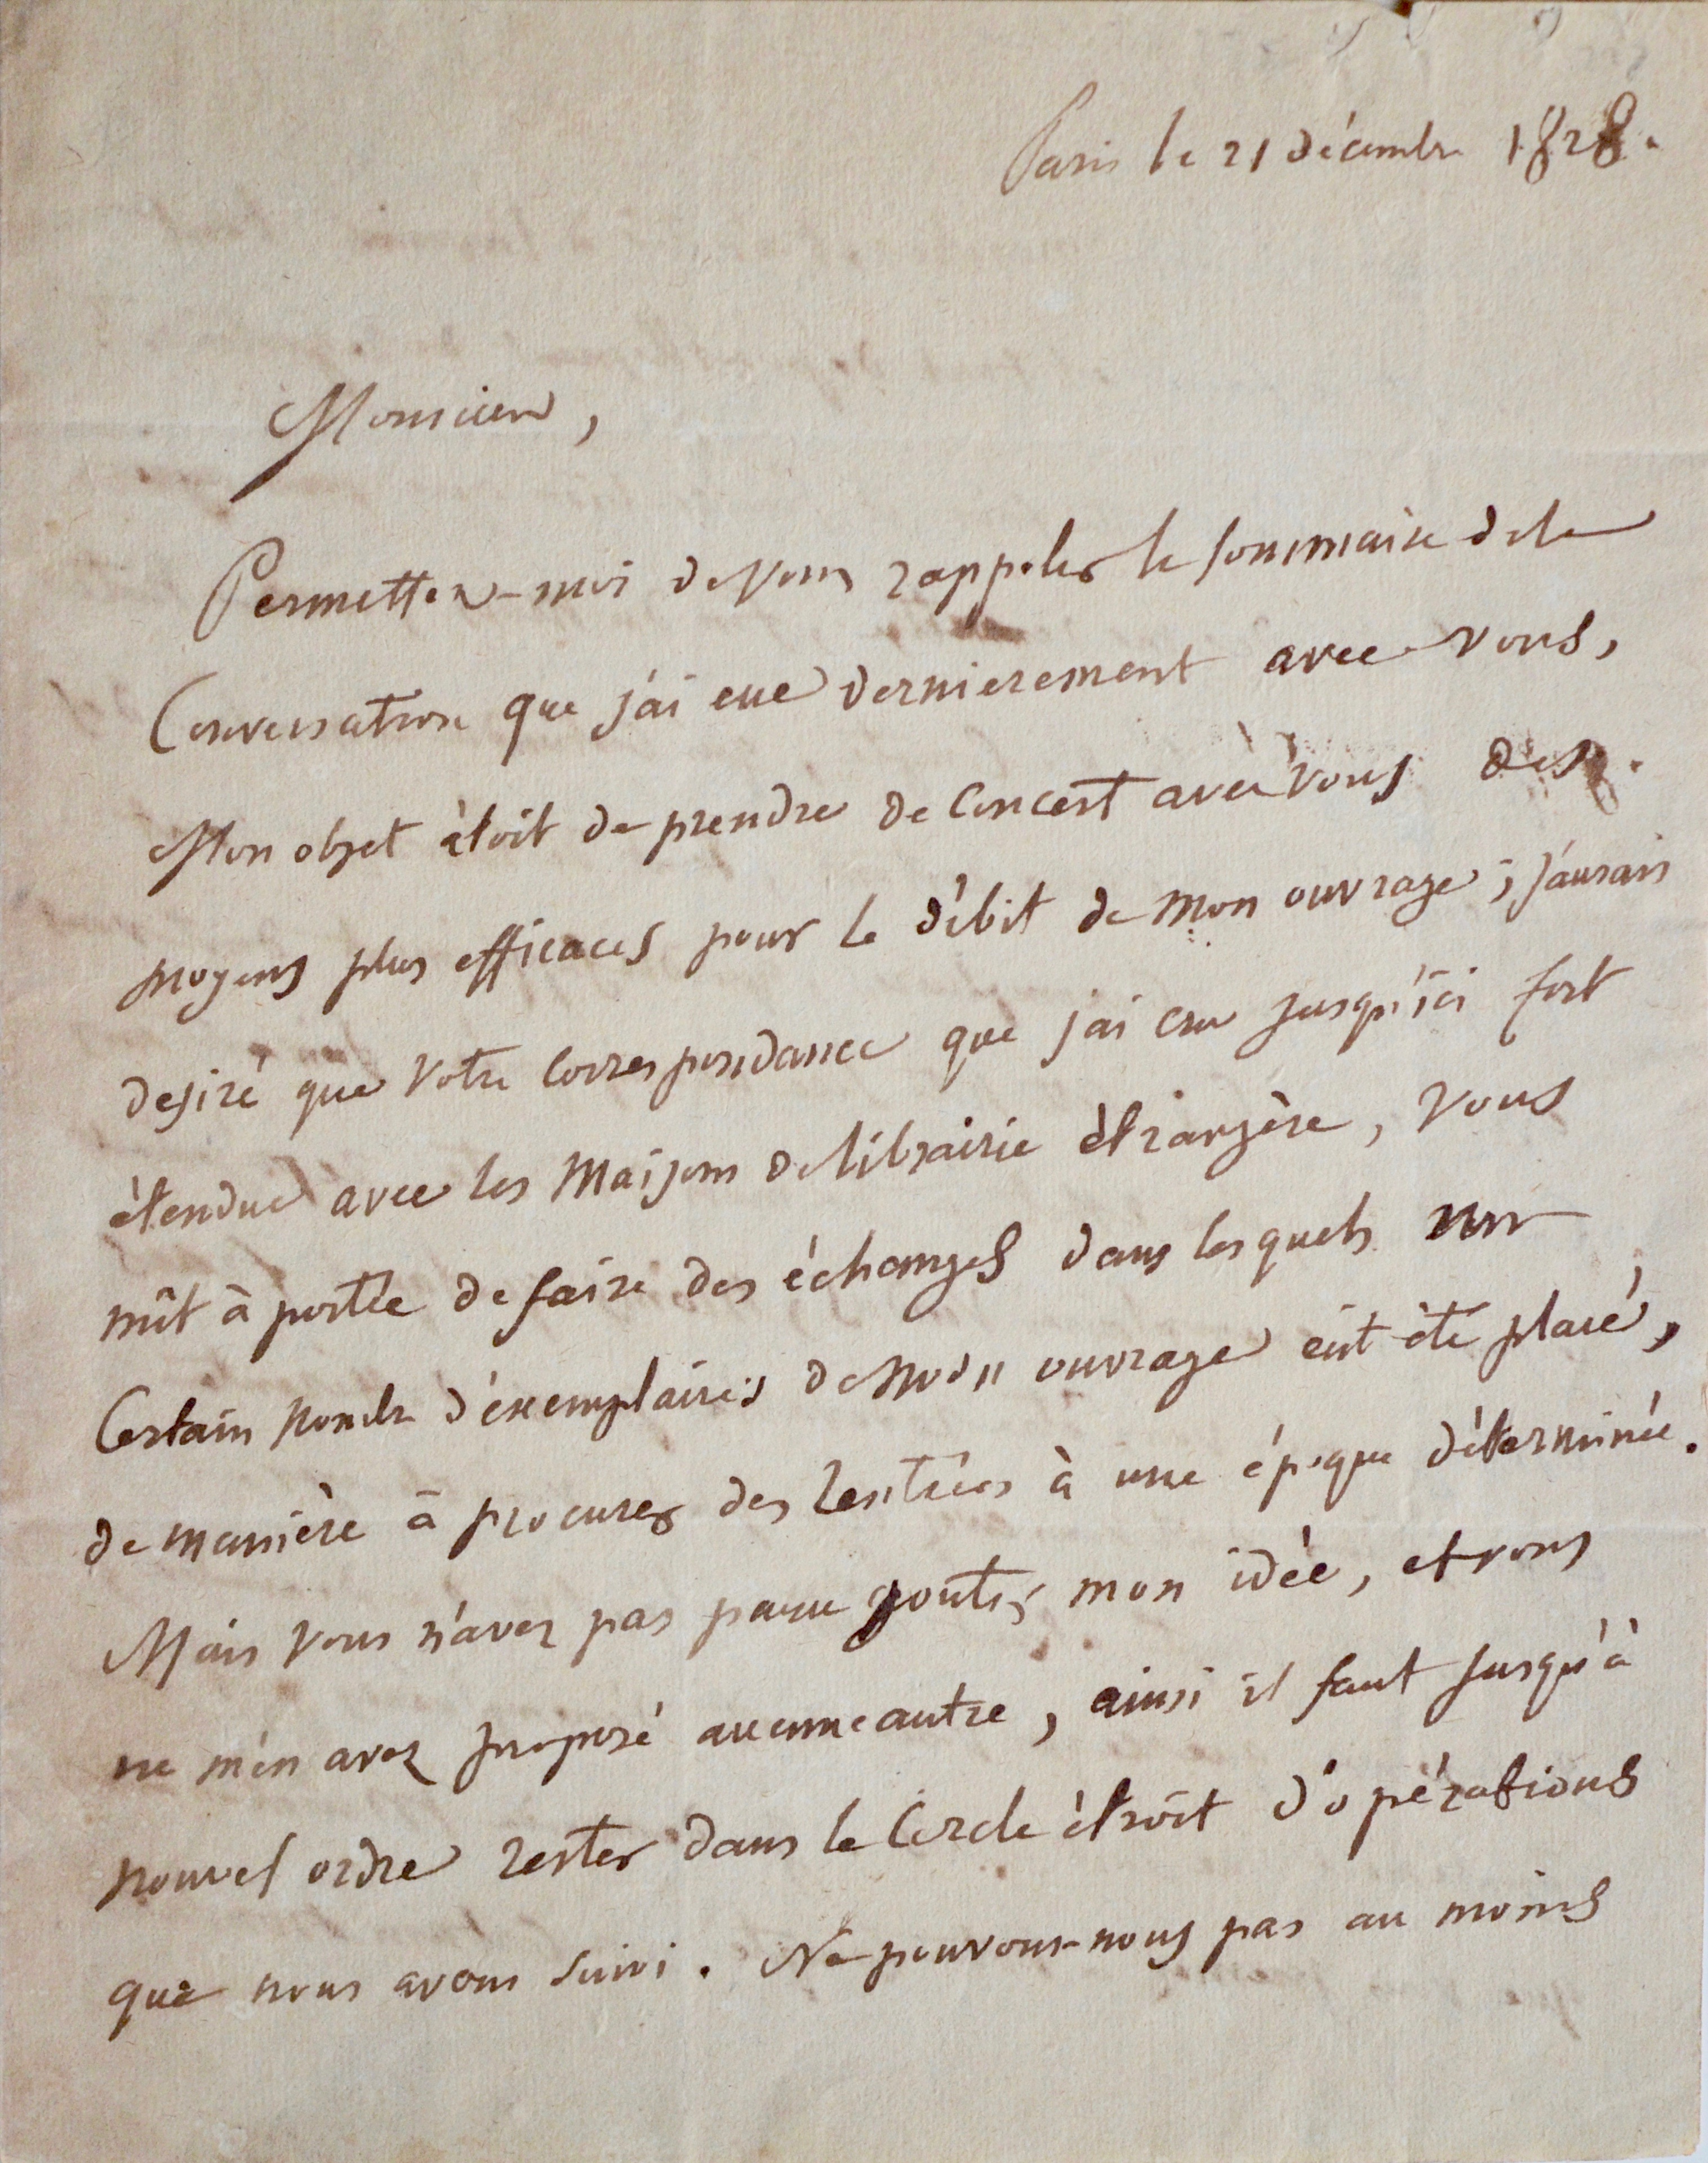 Paris le 21 décembre 1828.
Monsieur,
Permettez-moi de vous rappeler le sommaire de la
Conversation que j'ai eue dernierement avec vous,
Mon objet étoit de prendre de concert avec vous des
moyens plus efficaces pour le débit de mon ouvrage ; j'aurais
desiré que votre correspondance que j'ai cru jusqu'ici fort
étendue avec les Maisons de librairie étrangère, vous
mît à portée de faire des échanges dans lesquels un
Certain nombre d'exemplaires de ouvrage eut été placé,
de manière à procurer des rentrées à une époque déterminée.
Mais vous n'avez pas paru gouter mon idée, et vous
ne m'en avez proposé aucune autre, ainsi il faut jusqu'à
nouvel ordre rester dans le Cercle étroit d'opérations
que nous avons suivi. Ne pouvons-nous pas au moins